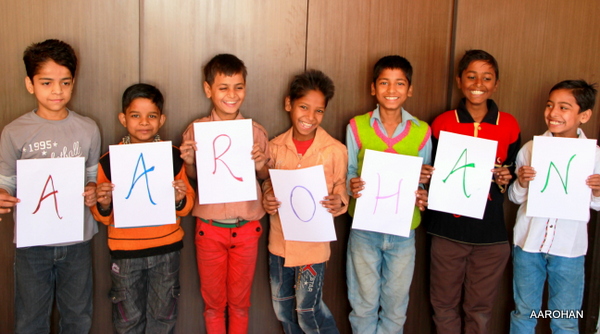 1995
A A R O H A N
AAROHAN